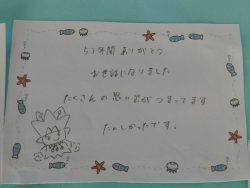 5年間ありがとう
お世話になりました
たくさんの思い出がつまってます
たのしかったです。